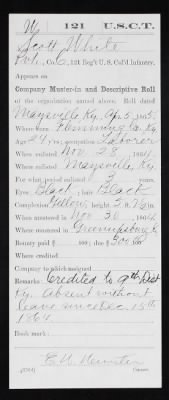 W 121 U.S.C.T.
Scott White
Pvt., Co. 121 Reg't U. S. Col'd Infantry.
Appears on
Company Muster-in and Descriptive Roll
of the organization named above. Roll dated
Maysville, Ky, Apr 3, 1865.
Where born Flemming Co. Ky
Age 24 y'rs; occupation Laborer
When enlisted Nov. 28, 1864.
Where enlisted Maysville, Ky.
For what period enlisted 3 years.
Eyes Black; hair Black
Complexion Yellow; height 5 ft. in.
When mustered in Nov 30, 1864.
Where mustered in
Bounty paid $ 100; due $ 100
Where credited
Company to which assigned
Remarks: Credited to 9th Dist
Ky. Absent without
leave since Dec. 15th
1864
Book mark:
Copyist.